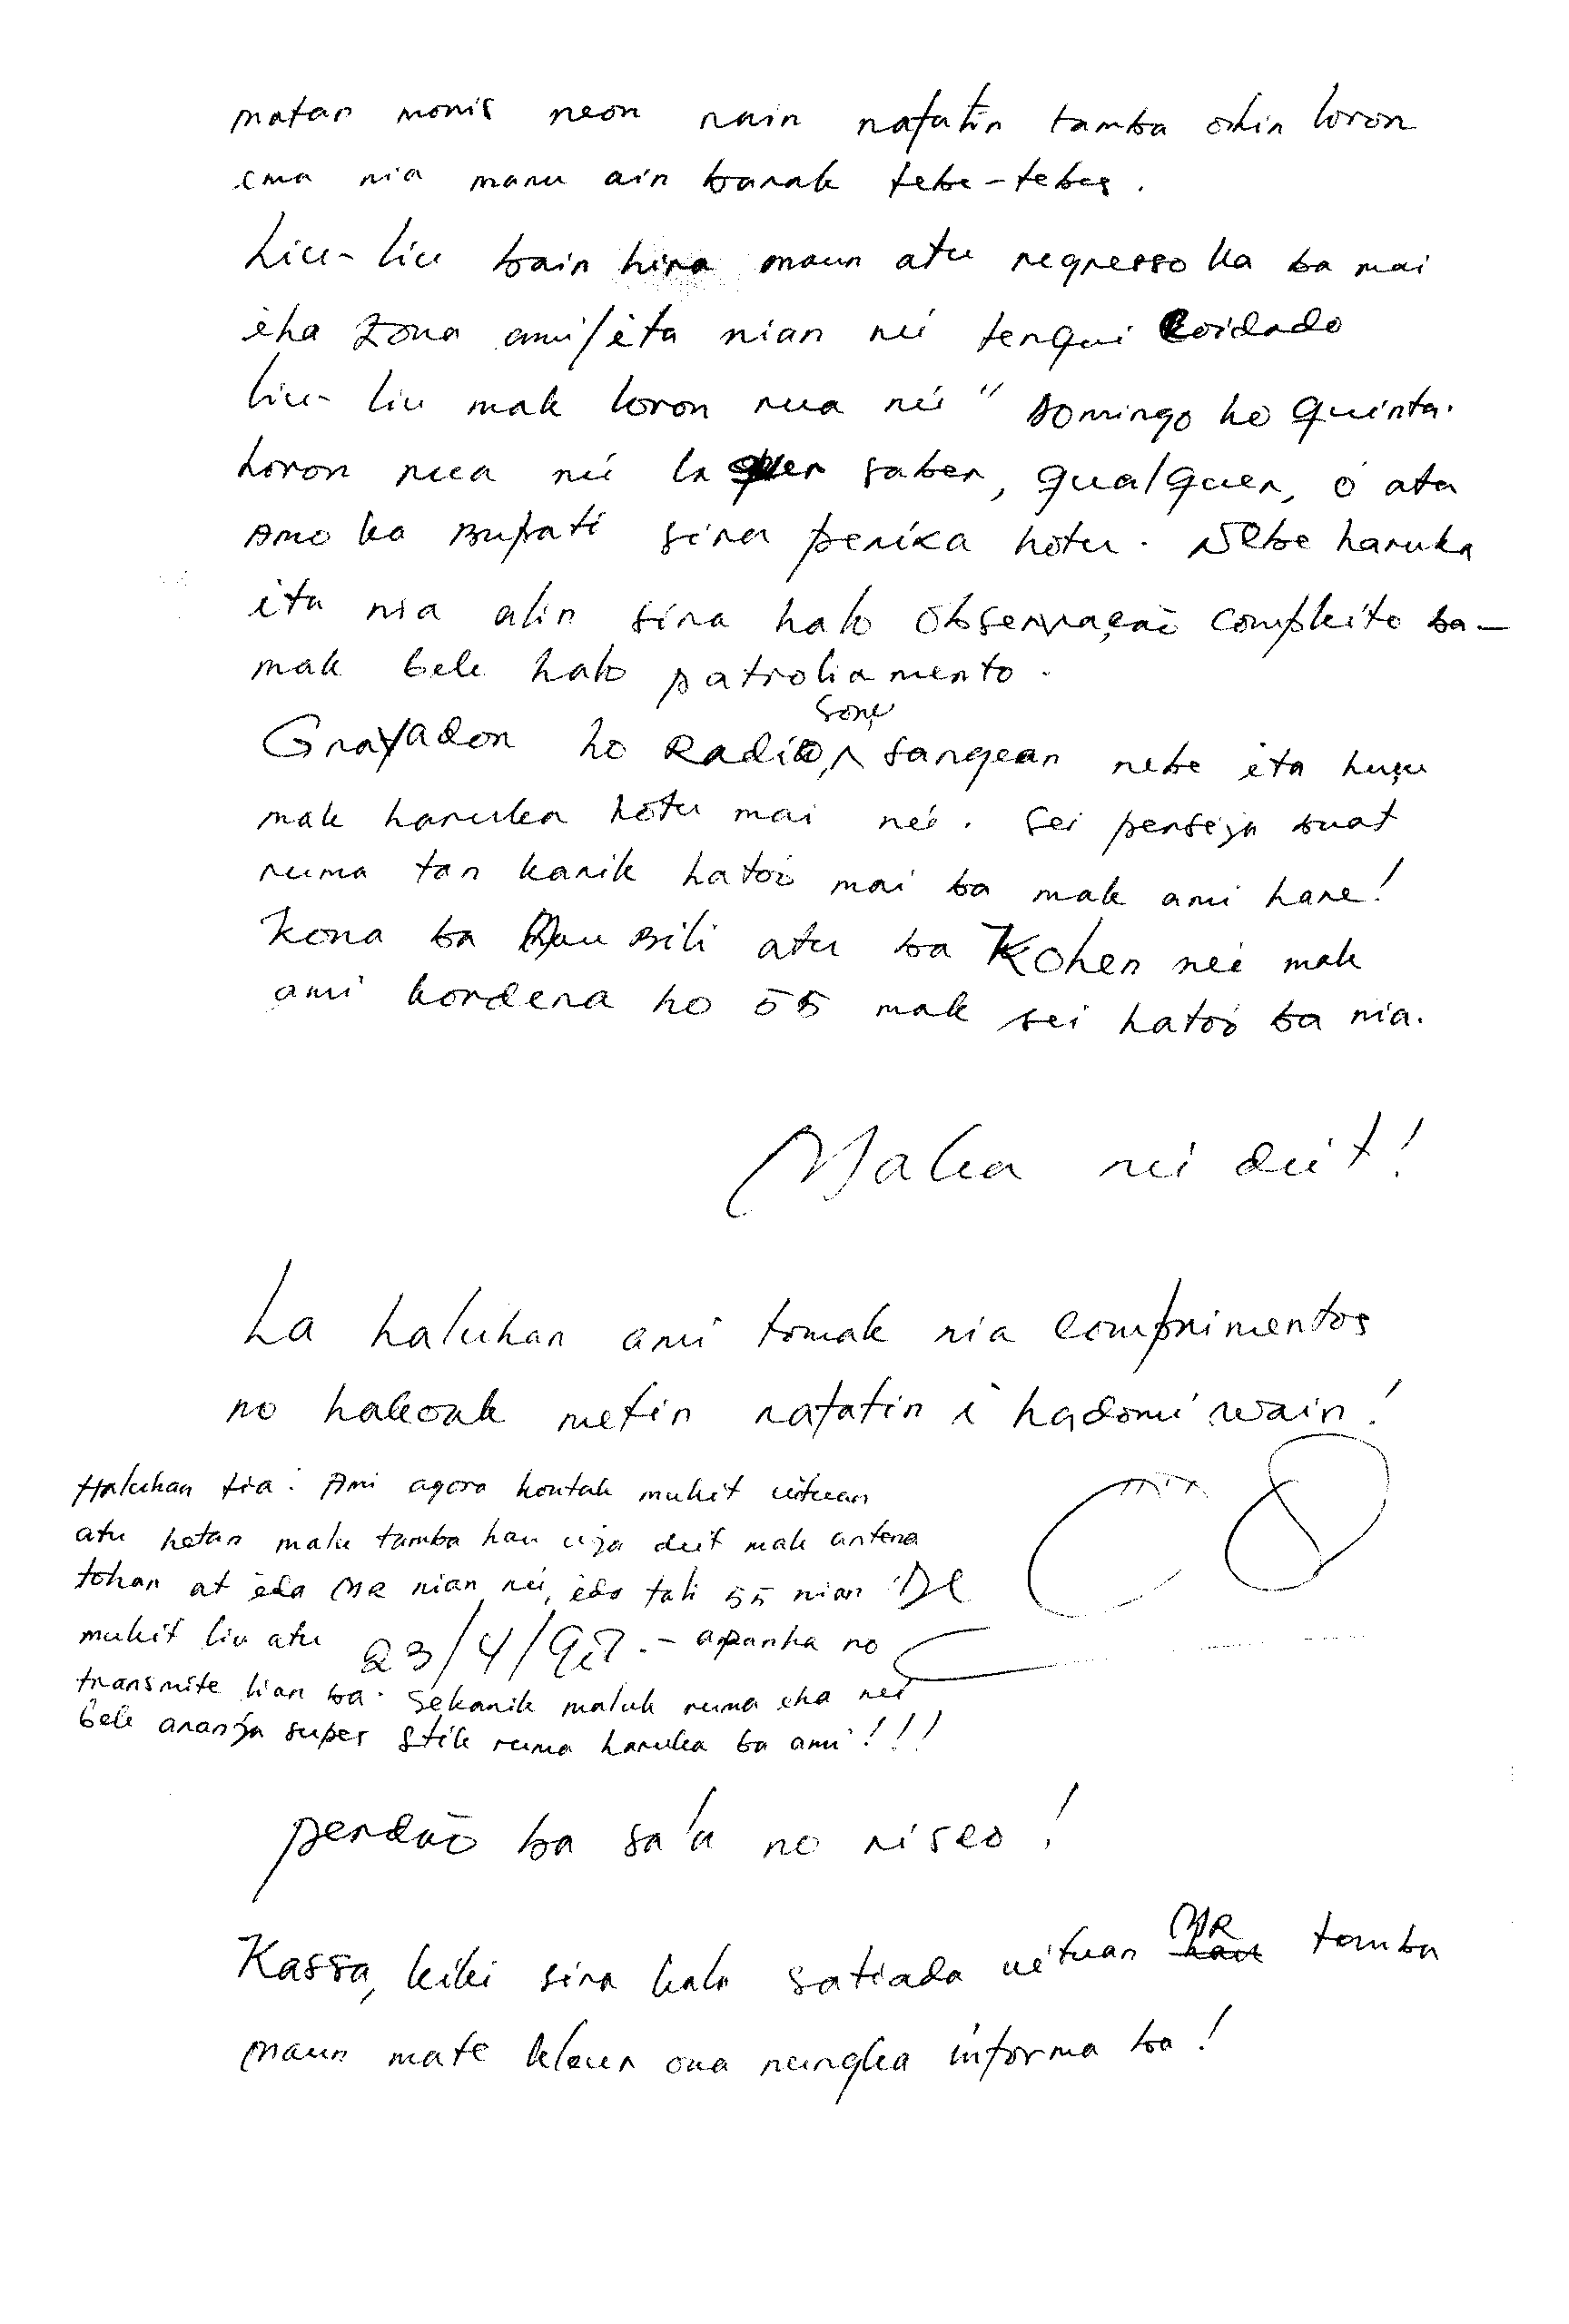 matan moris neon nain nafatin tamba ohin loron
ema nia manu ain barak tebe-tebes.
Liu-liu bain hira maun atu regresso ka ba mai
eha zona ami/ita nian nei tenqui coidado
liu-liu mak loron rua nei " Domingo ho Quinta.
Loron rua nei la quer saber, qualquer, o ata
Amo ka Bupati sira perika hotu. Nebe haruka
ita nia alin sira halo observação compleito ba-
mak bele halo patroliamento.
Gravador ho Radio, sony sangean nebe ita husu
mak haruka hotu mai nei. Sei perseja buat
ruma tan karik hatoo mai ba mak ami hare!
Kona ba Mau Bili atu ba Kohen nei mak
ami kordena ho 55 mak sei hatoo ba nia.
Maka nei deit!
La haluhan ami tomak nia comprimentos
no hakoak metin nafatin i hadomi wain!
Haluhan tia: Ami agora kontak mukit uituan
atu hetan malu tamba hau uza deit mak antena
tohan at eda MR nian nei, eda tali 55 nian
mukit liu atu apanha no
23/4/97.-
transmite lian ba. Sekarik maluk ruma eha nei
bele aranja super stik ruma haruka ba ami!!!
perdão ba sala no risco!
Kassa, kiki sira halo satiada uituan MR tamba
maun mate kleur ona nungka informa ba!